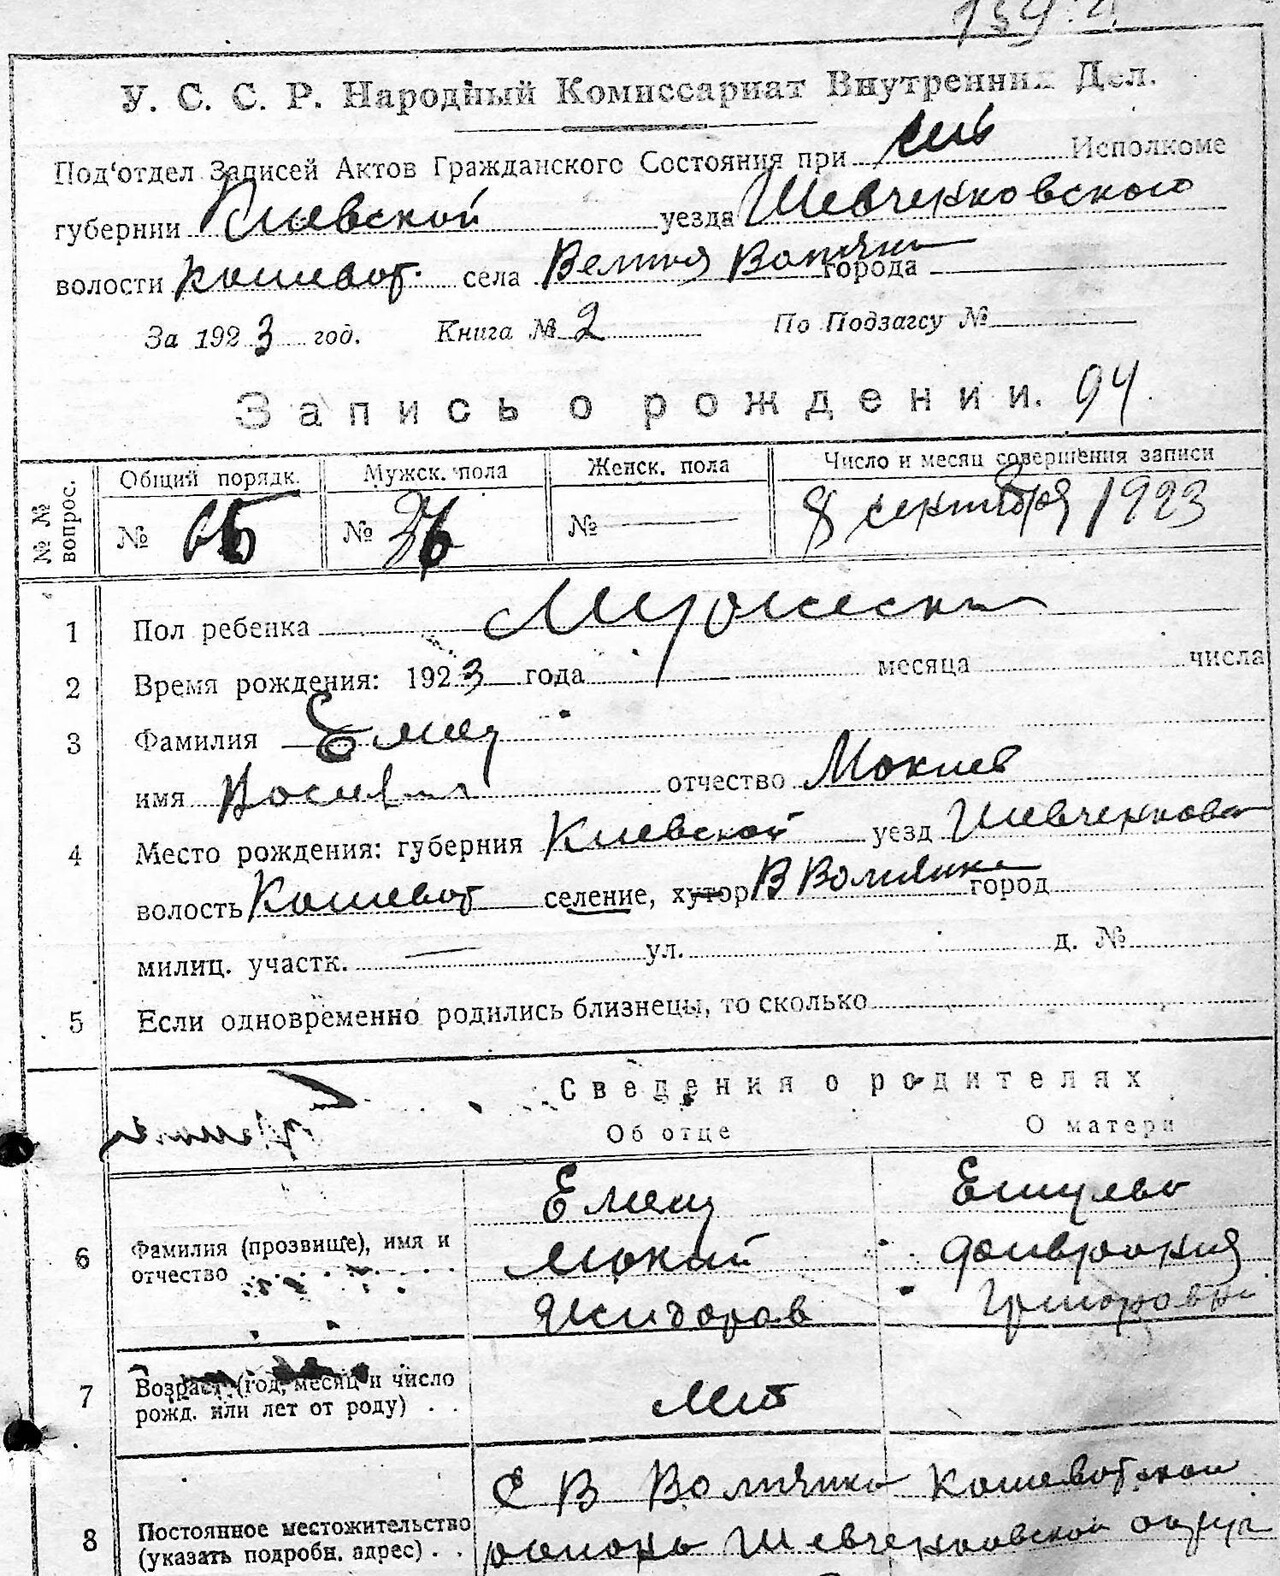 У. С. С. Р. Народный Комиссариат Внутренних Дел.
Под'отдел Записей Актов Гражданского Состояния при Исполкоме
губернии Киевской уезда Шевченковского
волости Кошеват. села города
За 1923 год. Книга № 2 По Подзагсу №
Запись о рождении. 94
№ № вопрос. Общий порядк. Мужск. пола Женск. пола Число и месяц совершения записи
№ 65 № 26 № — 8 сентября 1923
1 Пол ребенка Мужеский
2 Время рождения: 1923 года месяца числа
3 Фамилия Емец
имя отчество Мокиев
4 Место рождения: губерния Киевской уезд Шевченков
волость Кошеват селение, хутор В город
милиц. участк. — ул. д. №
5 Если одновременно родились близнецы, то сколько
Сведения о родителях
Об отце О матери
Емец
6 Фамилия (прозвище), имя и отчество Мокий
Григоровна
7 Возраст (год, месяц и число рожд. или лет от роду) . . лет
С В Кошеватской
8 Постоянное местожительство (указать подробн. адрес) . . Шевченковской округи